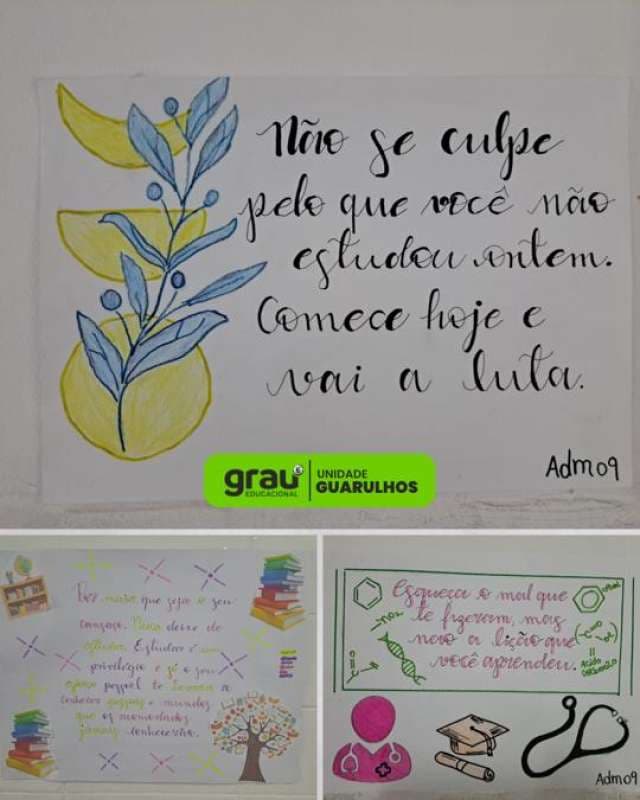 Não se culpe
pelo que você não
estudou ontem.
Comece hoje e
vai a luta.
Adm09
grau
EDUCACIONAL
UNIDADE
GUARULHOS
Por maior que seja o seu
cansaço. Nunca deixe de
estudar. Estudar é um
privilégio e só o seu
esforço pessoal te levará a
conhecer pessoas e mundos
que os acomodados
jamais conhecerão.
Esqueça o mal que
te fizeram, mas
não a lição que
você aprendeu.
Adm09